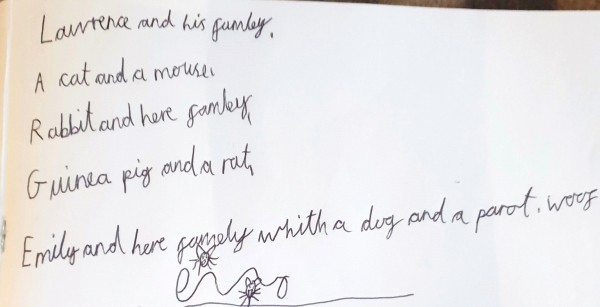 Lawrence and his famley.
A cat and a mouse.
Rabbit and here famley,
Guinea pig and a rat,
Emily and here famely whith a dog and a parot. woof